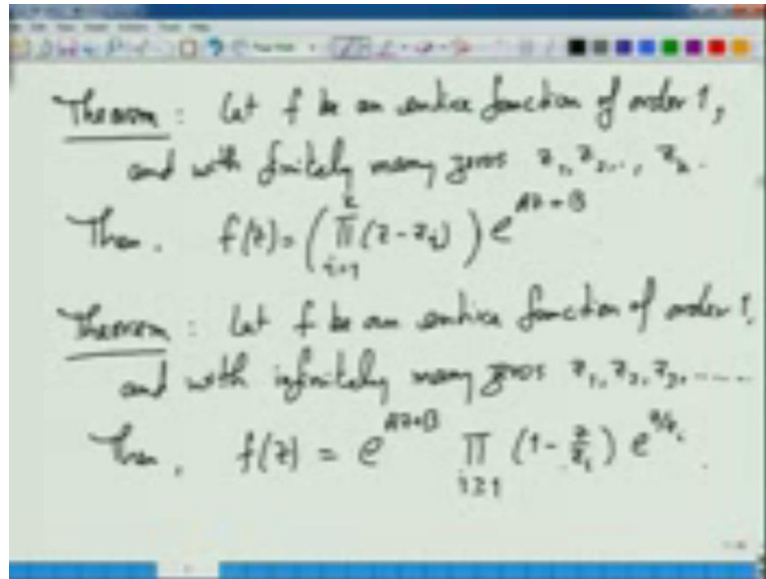 Theorem : Let f be an entire function of order 1,
and with finitely many zeros z₁, z₂, ..., z_k.
Then, f(z) = (∏_{i=1}^{k} (z - z_i)) e^{Az+B}
Theorem : Let f be an entire function of order 1,
and with infinitely many zeros z₁, z₂, z₃, ......
Then, f(z) = e^{Az+B} ∏_{i≥1} (1 - z/z_i) e^{z/z_i}.